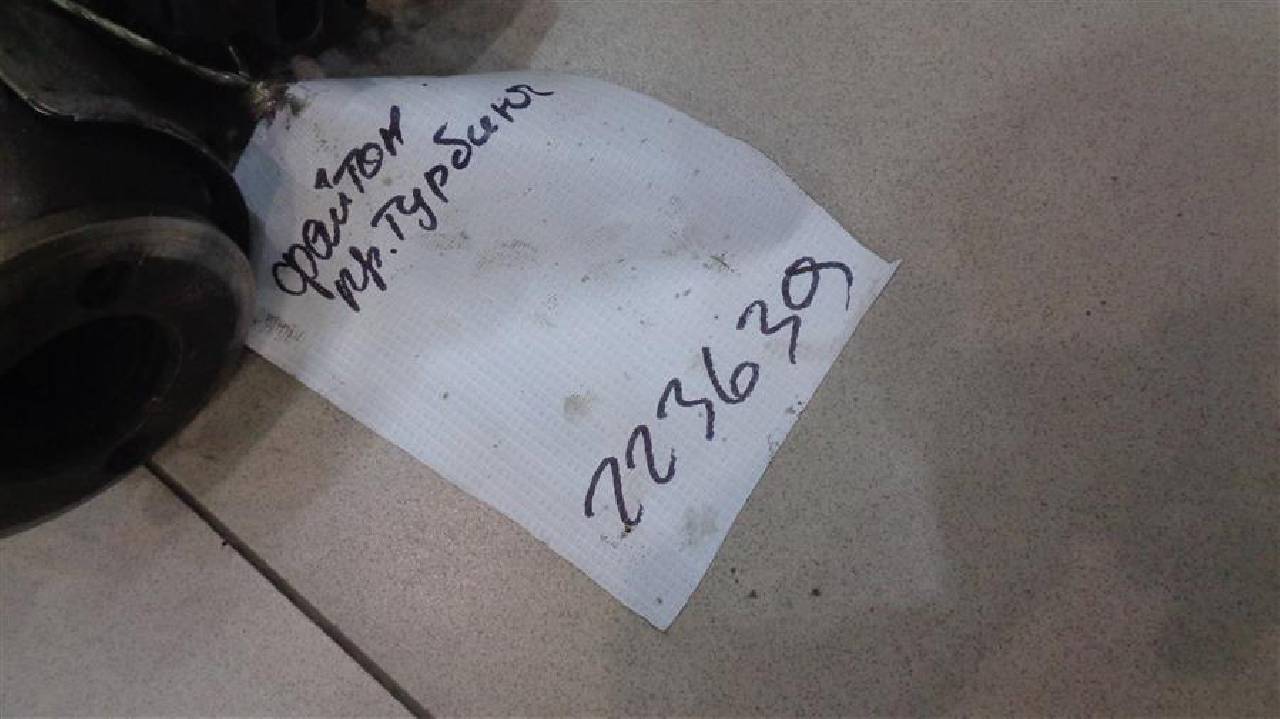 Файтон
пр. Турбина
223639